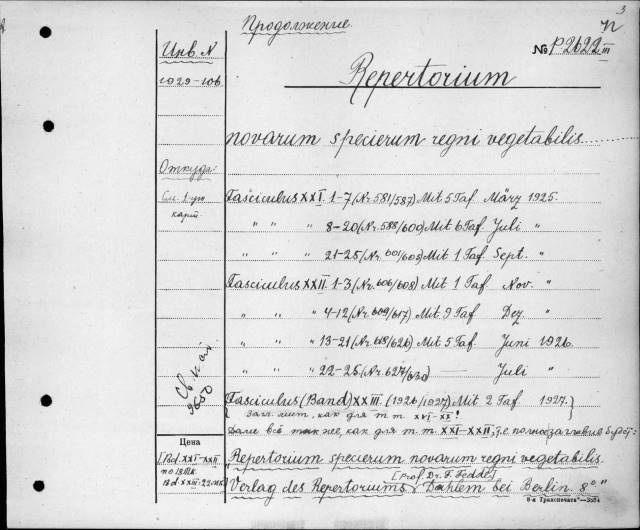 3
Продолжение.
Инв. N
№ P2622 III
1029-106
Repertorium
novarum specierum regni vegetabilis
Откуда
См. 1-ую карт
Fasciculus XXI. 1-7 (Nr. 581/587) Mit 5 Taf. März 1925.
" " " 8-20 (Nr. 588/600) Mit 6 Taf. Juli "
" " " 21-25 (Nr. 601/605) Mit 1 Taf. Sept. "
Fasciculus XXII. 1-3 (Nr. 606/608) Mit 1 Taf. Nov. "
" " " 4-12 (Nr. 609/617) Mit 9 Taf. Dez. "
" " " 13-21 (Nr. 618/626) Mit 5 Taf. Juni 1926.
" " " 22-25 (Nr. 627/630) — Juli "
Fasciculus (Band) XXIII. (1926/1927) Mit 2 Taf. 1927.
Загл. лист, как для т.т. XVI-XX!
Далее всё так же, как для т.т. XXI-XXII, т.е. полное заглавие будет:
Цена
[Bd. XXI-XXII
по 18 Мк.
Bd. XXIII: 22 Мк.]
Repertorium specierum novarum regni vegetabilis.
[Prof. Dr. F. Fedde]
Verlag des Repertoriums, Dahlem bei Berlin. 8° "
6-я Транспечать—3534